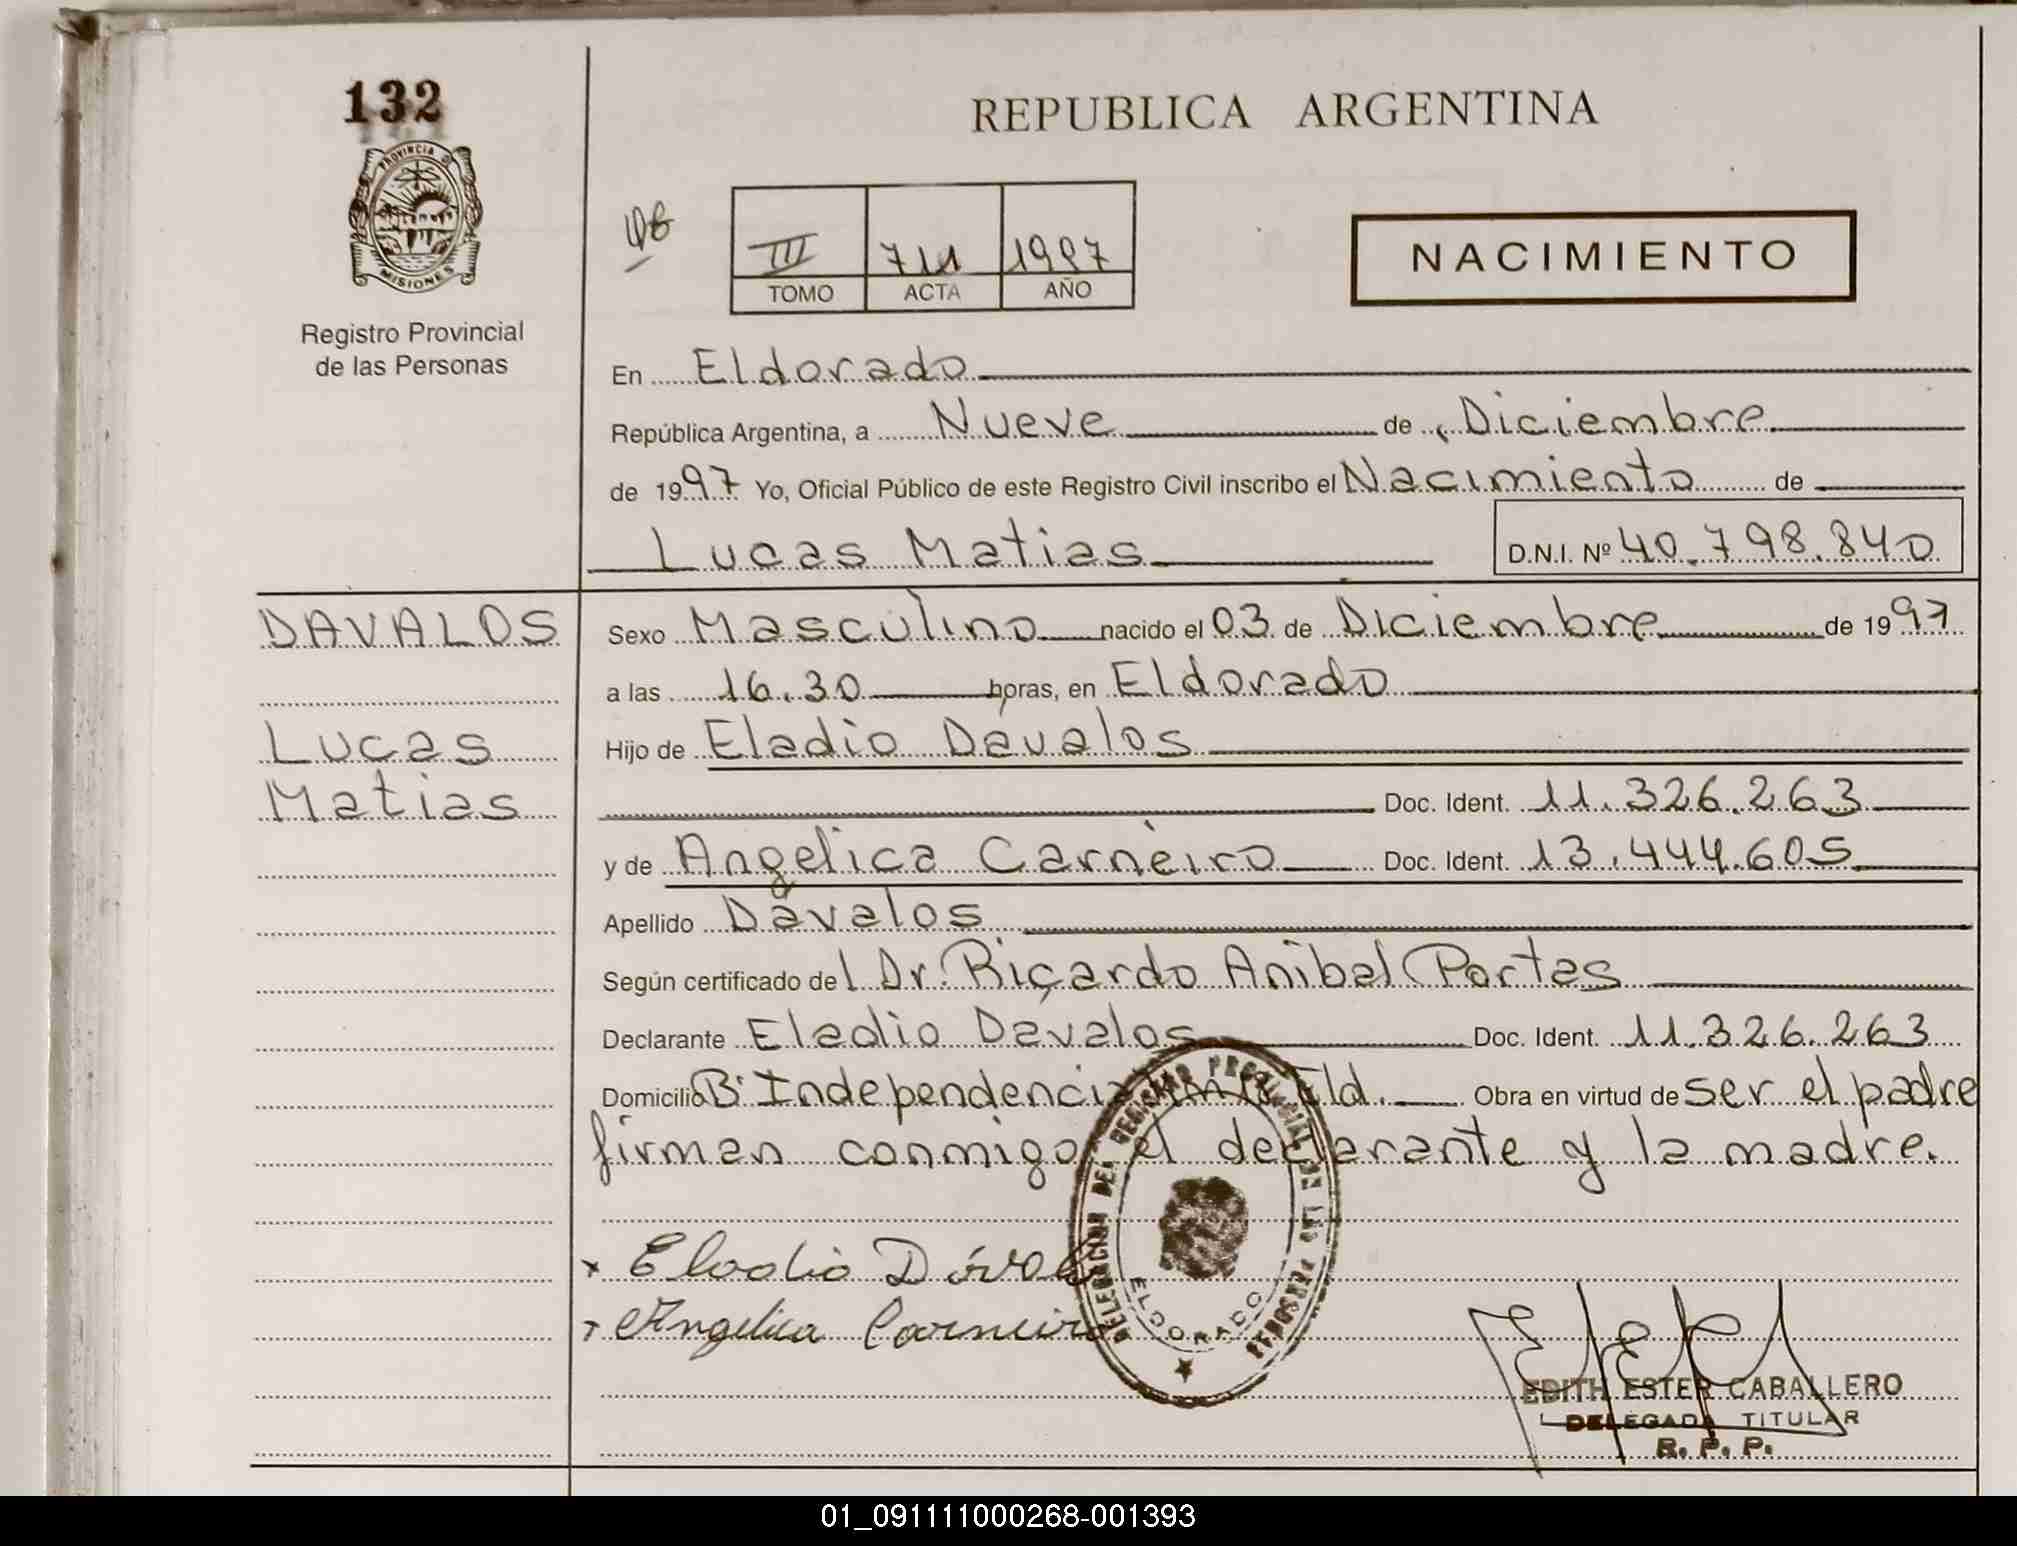 132
PROVINCIA D
MISIONES
Registro Provincial
de las Personas
REPUBLICA ARGENTINA
III 711 1997
TOMO ACTA AÑO
NACIMIENTO
En Eldorado
República Argentina, a Nueve de Diciembre
de 1997 Yo, Oficial Público de este Registro Civil inscribo el Nacimiento de
Lucas Matias D.N.I. Nº 40.798.840
DAVALOS
Lucas
Matias
Sexo Masculino nacido el 03 de Diciembre de 1997
a las 16.30 horas, en Eldorado
Hijo de Eladio Dávalos
Doc. Ident. 11.326.263
y de Angelica Carneiro Doc. Ident. 13.444.605
Apellido Dávalos
Según certificado del Dr. Ricardo Anibal Portas
Declarante Eladio Davalos Doc. Ident. 11.326.263
Domicilio Bº Independencia Eld. Obra en virtud de ser el padre
firman conmigo el declarante y la madre.
Eladio Dával
Angelica Carneiro
DELEGACION DEL REGISTRO PROVINCIAL DE LAS PERSONAS
ELDORADO
EDITH ESTER CABALLERO
DELEGADA TITULAR
R. P. P.
01_091111000268-001393